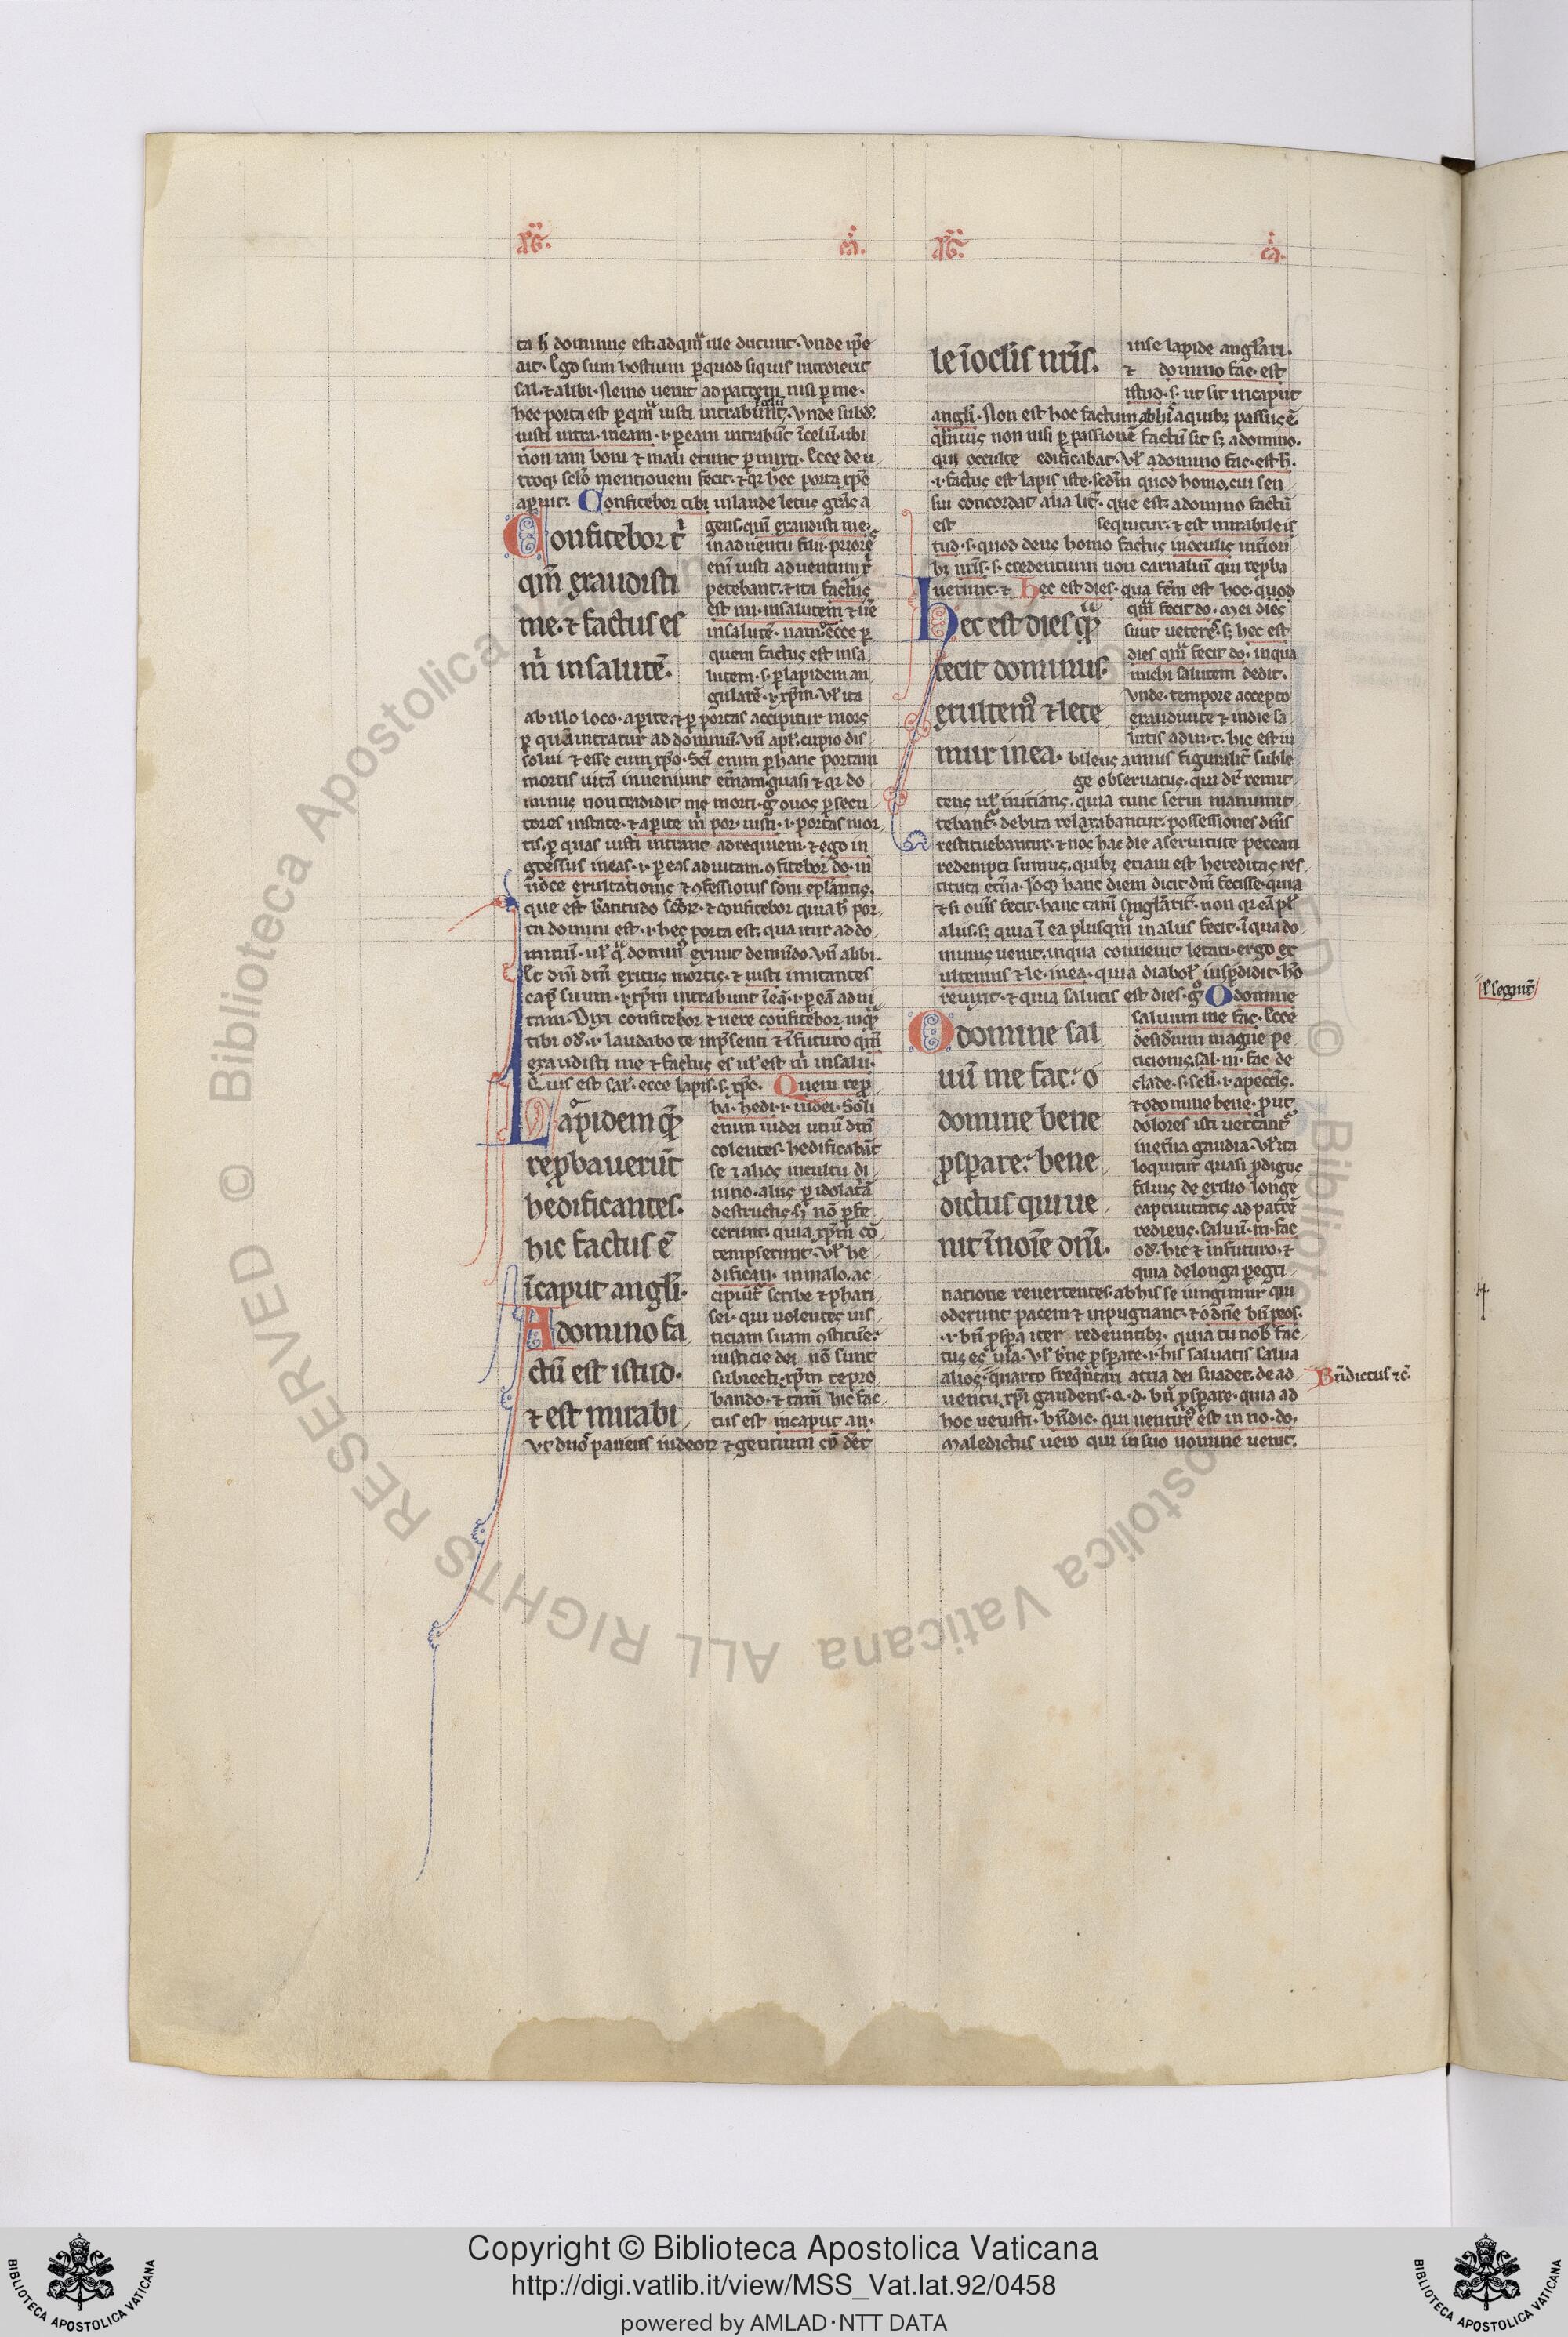 ta h̄ dominus est ad qm̄ ille ducunt. Vnde ip̄e
ait. Ego sum hostium ꝑ quod siquis introierit
sal. ⁊ alibi. Nemo uenit ad patrem nisi ꝑ me.
hec porta est ꝑ qm̄ iusti intrabunt. Vnde subdr̄.
iusti intra. in eam .i. ꝑ eam intrabūt ī celū. ubi
non iam boni ⁊ mali erunt ꝑmixti. Ecce de u
troq; sc̄lo mentionem fecit. ⁊ qr hec porta xp̄c
aperuit. Confitebor tibi in laude letus grās a
Confitebor t̄
qm̄ exaudisti
me. ⁊ factus es
m̄ in salutē.
gens. qm̄ exaudisti me.
in aduentu filii. priores
eni iusti aduentum xp̄i
petebant. ⁊ ita factus
est mi. in salutem ⁊ ue
in salutē. nam ecce ꝑ
quem factus est in sa
lutem .s. ꝑ lapidem an
gularē .i. xp̄m. Vl̄ ita
ab illo loco. aperite. ⁊ ꝑ portas accipitur mors
ꝑ quā intratur ad dominū. Vn̄ apl̄. cupio dis
solui ⁊ esse cum xp̄o. Sc̄i enim ꝑ hanc portam
mortis uitā inueniunt et̄nam. quasi ⁊ qr do
minus non tradidit me morti. g̊ o uos ꝑsecu
tores instate. ⁊ aperite m̄ por. iusti .i. portas mor
tis. ꝑ quas iusti intrant ad requiem. ⁊ ego in
gressus in eas .i. ꝑ eas ad uitam. ꝯfitebor do. in
uoce exultationis ⁊ ꝯfessionis soni epl̄antis.
que est b̄atitudo sc̄oꝝ. ⁊ confitebor quia h̄ por
ta domini est .i. hec porta est. qua itur ad do
minū. ul̄ q̄ domini exeunt de mūdo. Vn̄ alibi.
Et dm̄ dm̄ exitus mortis. ⁊ iusti imitantes
cap̄ suum .i. xp̄m intrabunt ī eā .i. ꝑ eā ad ui
tam. Dixi confitebor ⁊ uere confitebor inquā
tibi o d̄. i. laudabo te in p̄senti ⁊ ī futuro qm̄
exaudisti me ⁊ factus es ul̄ est m̄ in salu.
Quis est sal̄. ecce lapis .s. xp̄c. Quem repro
Lapidem quē
reprobauerūt
hedificantes.
hic factus ē
ī caput angl̄i.
A domino fa
ctū est istud.
⁊ est mirabi
ba. hedi. i. iudei. Soli
enim iudei unū dm̄
colentes. hedificabāt
se ⁊ alios in cultu di
uino. aliis ꝑ idolatriā
destructis. s; nō ꝑfe
cerunt. quia xp̄m cō
tempserunt. Vl̄ he
difican. in malo. ac
cipiunt̄ scribe ⁊ phari
sei. qui uolentes ius
ticiam suam ꝯstituere.
iusticie dei nō sunt
subiecti. xp̄m repro
bando. ⁊ tam̄ hic fac
tus est in caput an.
Vt duos parietes iudeoꝝ ⁊ gentium cō
le ī oclis nr̄is.
in se lapide anglari.
⁊ domino fac. est
istud .s. ut sit in caput
angl̄i. Non est hoc factum ab his a quibꝫ passus ē.
quis non nisi ꝑ passionē factū sit s; a domino.
qui occulte edificabat. Vl̄ a domino fac. est h̄.
.i. factus est lapis iste. scdm̄ quod homo. cui sen
sui concordat alia litt̄. que est. a domino factū
est sequitur. ⁊ est mirabile is
tud .s. quod deus homo factus in oculis interiori
bꝫ nr̄is .s. credentium non carnaliū qui reproba
uerunt. ⁊ Hec est dies. qua fcm̄ est hoc. quod
Hec est dies quā
fecit dominus.
exultemꝰ ⁊ lete
mur in ea.
qm̄ fecit do. Mei dies
sunt ueteres. s; hec est
dies qm̄ fecit do. in qua
michi salutem dedit.
Vnde. tempore accepto
exaudiui te ⁊ in die sa
lutis adiui. t. hic est iu
bileus annus figuralit̄ sub le
ge obseruatus. qui dr̄ remit
tens ul̄ initians. quia tunc serui manumit
tebant̄. debita relaxabantur. possessiones dn̄is
restituebantur. ⁊ nos hac die a seruitute peccati
redempti sumus. quibꝫ etiam est hereditas res
tituta et̄na. Ioq̄ hanc diem dicit dm̄ fecisse. quia
⁊ si oms̄ fecit. hanc tam̄ singl̄arit̄. non qr eā pl̄
aliis. s; quia ī ea plusqm̄ in aliis fecit. ī qua do
minus uenit. in qua conuenit letari. ergo ex
ultemus ⁊ le. in ea. quia diabol̄ ius ꝑdidit. hō
reuixit. ⁊ quia salutis est dies. g̊ O domine
O domine sal
uū me fac. o
domine bene
prosperare. bene
dictus qui ue
nit ī noīe dn̄i.
saluum me fac. Ecce
desid̄ium magne pe
ticionis. sal. m. fac de
clade .s. sc̄li .i. a peccis.
⁊ o domine bene. pro ut
dolores isti uertant̄
in et̄na gaudia. Vl̄ ita
loquitur quasi prodigus
filius de exilio longe
captiuitatis ad patrē
rediens. saluū. m. fac
o d̄. hic ⁊ in futuro. ⁊
quia de longa peregri
natione reuertentes. ab his se iungimur qui
oderunt pacem ⁊ inpugnant. ⁊ o dn̄e bn̄ pros.
.i. bn̄ prospa iter redeuntibꝫ. quia tu nob̄ fac
tus es uia. Vl̄ bn̄e prosperare .i. his saluatis salua
alios. quarto frequentari atria dei suadet. de ad
uentu xp̄i gaudens. q. d. bn̄ prosperare. quia ad
hoc uenisti. Bn̄dic. qui uenturꝰ est in no. do.
Maledictus uero qui in suo nomine uenit.
Bn̄dictus ⁊c̄.
Copyright © Biblioteca Apostolica Vaticana
http://digi.vatlib.it/view/MSS_Vat.lat.92/0458
powered by AMLAD·NTT DATA
BIBLIOTECA APOSTOLICA VATICANA
BIBLIOTECA APOSTOLICA VATICANA
© Biblioteca Apostolica Vaticana ALL RIGHTS RESERVED